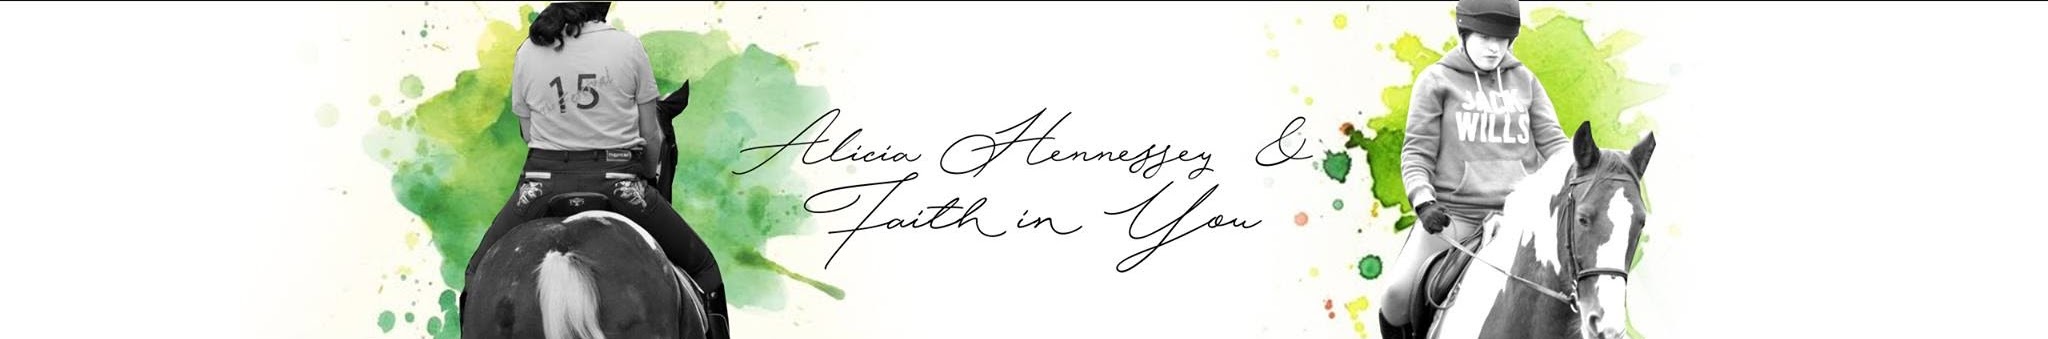 15
Alicia Hennessey &
Faith in You
JACK
WILLS